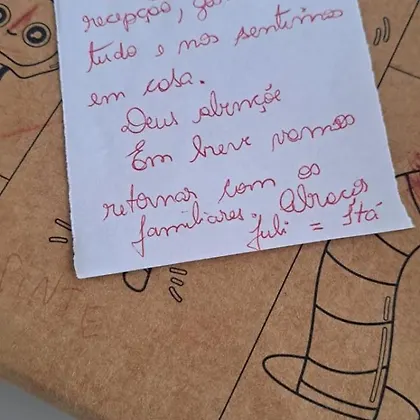 recepção,
tudo e nos sentimos
em casa.
Deus abençõe
Em breve vamos
retornar com os
familiares. Abraços
Juli = Itá
PINTE